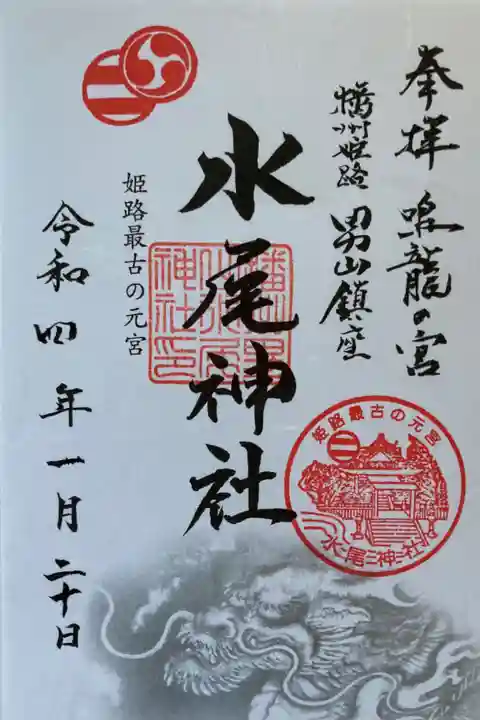 奉拝 鳴龍の宮
播州姫路 男山鎮座
水尾神社
姫路最古の元宮
令和四年一月二十日
姫路最古の元宮
水尾神社